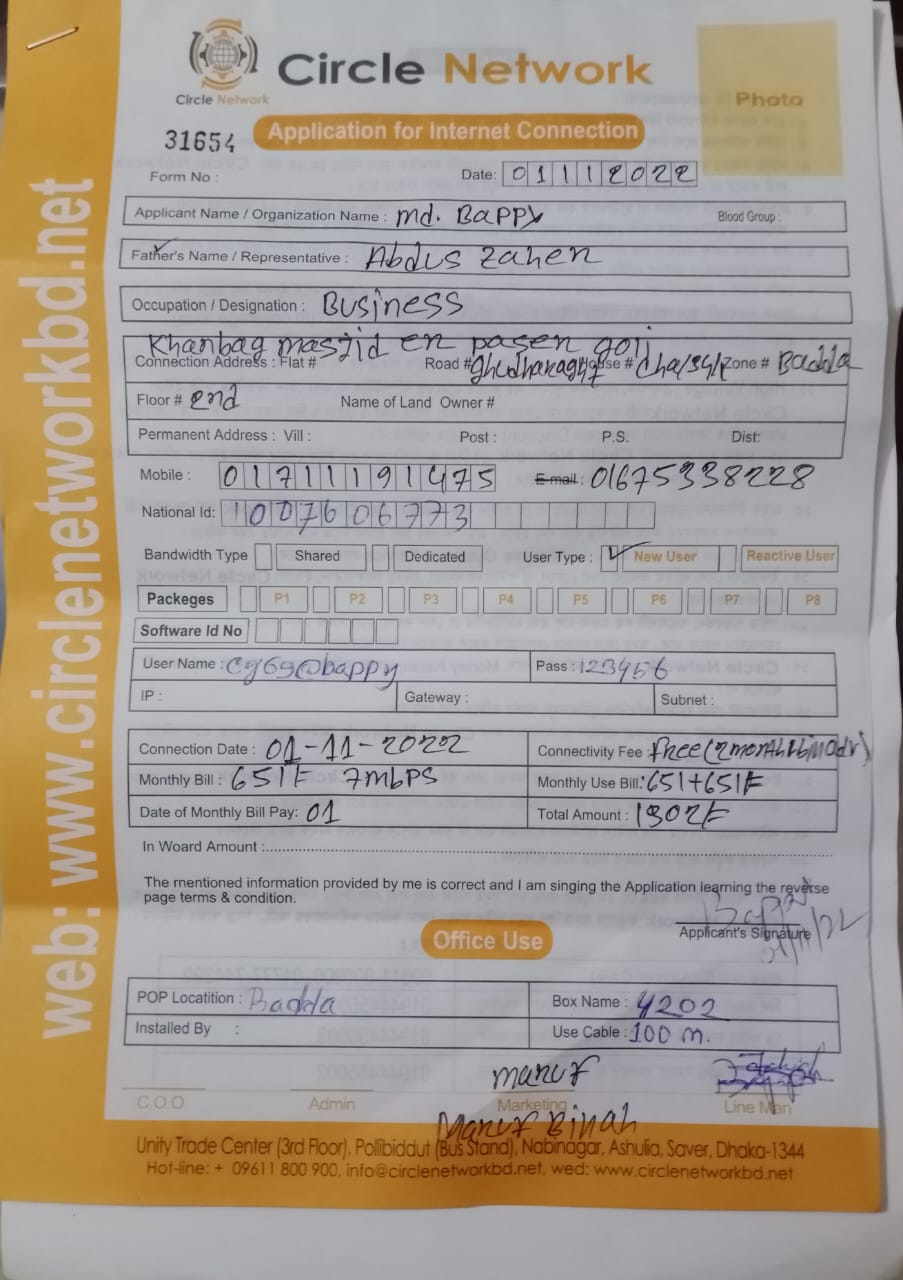 Circle Network
Circle Network
Photo
31654
Application for Internet Connection
Form No :
Date: 01112022
Applicant Name / Organization Name : Md. BAPPY Blood Group :
Father's Name / Representative : Abdus Zaher
Occupation / Designation : Business
Khanbag masjid er paser goli
Connection Address : Flat # Road # House # Cha/34/ Zone # Badda
Floor # 2nd Name of Land Owner #
Permanent Address : Vill : Post : P.S. Dist:
Mobile : 01711191475 E-mail : 01675338228
National Id: 1007606773
Bandwidth Type Shared Dedicated User Type : New User Reactive User
Packeges P1 P2 P3 P4 P5 P6 P7 P8
Software Id No
User Name : cg69@bappy Pass : 123456
IP : Gateway : Subnet :
Connection Date : 01-11-2022 Connectivity Fee : free
Monthly Bill : 651 7mbps Monthly Use Bill: 651+651
Date of Monthly Bill Pay: 01 Total Amount : 1302
In Woard Amount :
The mentioned information provided by me is correct and I am singing the Application learning the reverse
page terms & condition.
Applicant's Signature
Office Use
POP Locatition : Badda Box Name : 4202
Installed By : Use Cable : 100 m.
Maruf
C.O.O Admin Marketing Line Man
Maruf Binah
Unity Trade Center (3rd Floor), Pollibiddut (Bus Stand), Nabinagar, Ashulia, Saver, Dhaka-1344
Hot-line: + 09611 800 900, info@circlenetworkbd.net, wed: www.circlenetworkbd.net
web: www.circlenetworkbd.net